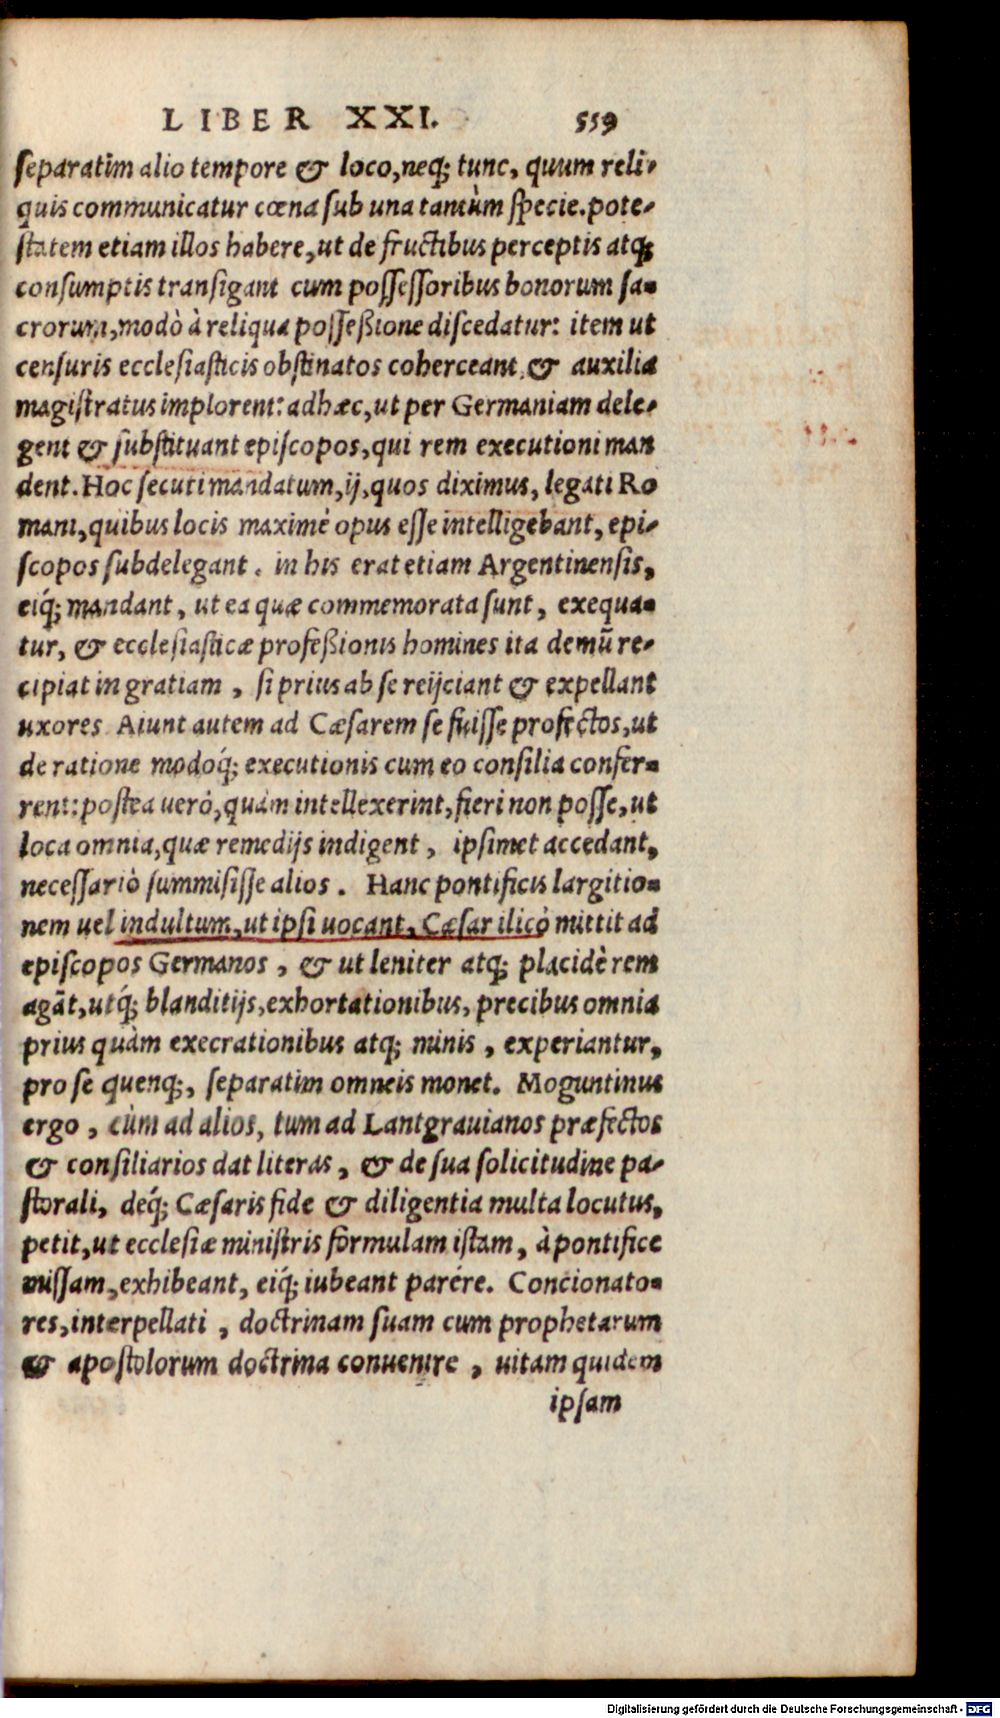 LIBER XXI. 559
separatim alio tempore & loco, neq; tunc, quum reli-
quis communicatur cœna sub una tantùm specie. pote-
statem etiam illos habere, ut de fructibus perceptis atq;
consumptis transigant cum possessoribus bonorum sa-
crorum, modò à reliqua possessione discedatur: item ut
censuris ecclesiasticis obstinatos coherceant, & auxilia
magistratus implorent: adhæc, ut per Germaniam dele-
gent & substituant episcopos, qui rem executioni man
dent. Hoc secuti mandatum, ij, quos diximus, legati Ro
mani, quibus locis maximè opus esse intelligebant, epi-
scopos subdelegant. in his erat etiam Argentinensis,
eiq́; mandant, ut ea quæ commemorata sunt, exequa-
tur, & ecclesiasticæ professionis homines ita demũ re-
cipiat in gratiam, si prius ab se reijciant & expellant
uxores. Aiunt autem ad Cæsarem se fuisse profectos, ut
de ratione modoq́; executionis cum eo consilia confer-
rent: postea uerò, quàm intellexerint, fieri non posse, ut
loca omnia, quæ remedijs indigent, ipsimet accedant,
necessariò summisisse alios. Hanc pontificis largitio-
nem uel indultum, ut ipsi uocant, Cæsar ilicò mittit ad
episcopos Germanos, & ut leniter atq; placidè rem
agãt, utq́; blanditijs, exhortationibus, precibus omnia
prius quàm execrationibus atq; minis, experiantur,
pro se quenq;, separatim omneis monet. Moguntinus
ergo, cùm ad alios, tum ad Lantgrauianos præfectos
& consiliarios dat literas, & de sua solicitudine pa-
storali, deq́; Cæsaris fide & diligentia multa locutus,
petit, ut ecclesiæ ministris formulam istam, à pontifice
missam, exhibeant, eiq́; iubeant parére. Concionato-
res, interpellati, doctrinam suam cum prophetarum
& apostolorum doctrina conuenire, uitam quidem
ipsam
Digitalisierung gefördert durch die Deutsche Forschungsgemeinschaft - DFG